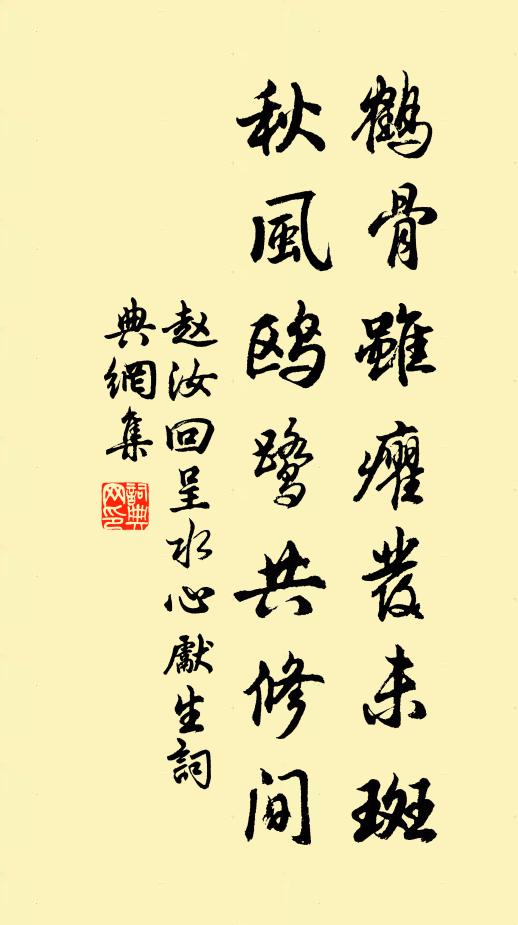 鶴骨雖癯發未斑
秋風鷗鷺共修間
赵汝回呈水心獻生詞
典網集
詞典
网印